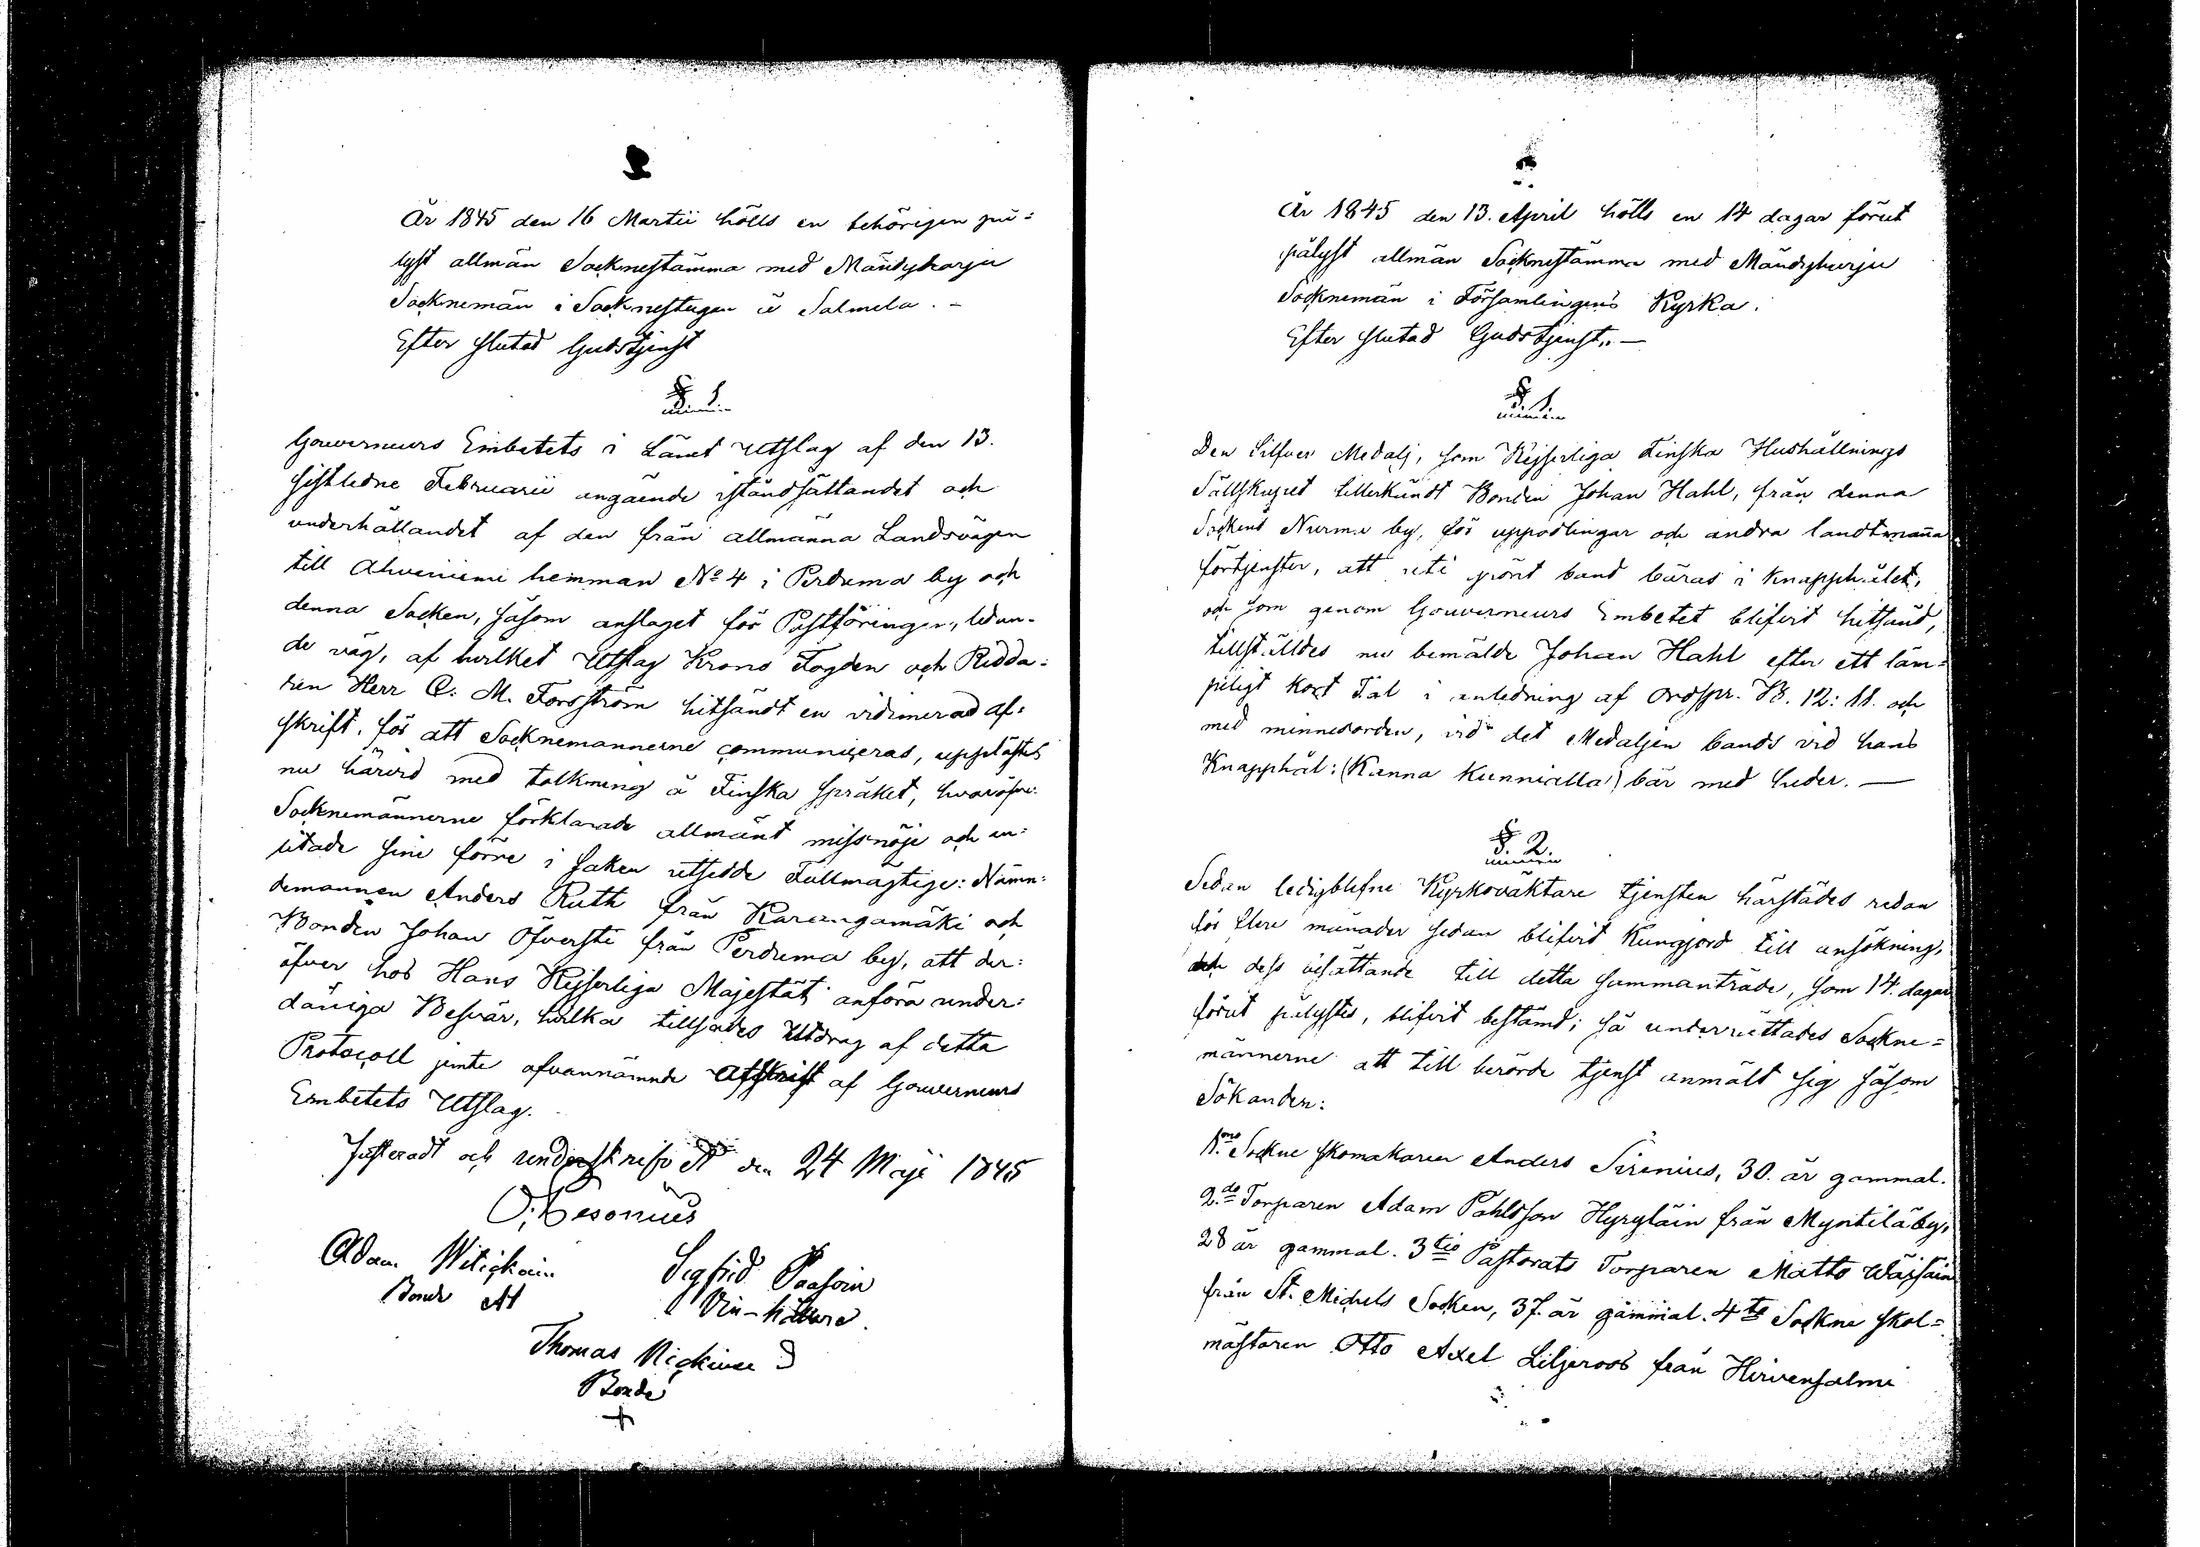 År 1845 den 16 Martii hölls en behörigen på=
lyst allmän Socknestämma med Mändyharju
Socknemän i Socknestugan å Salmela. -
Efter slutad Gudstjenst
§ 1.
Gouverneurs Embetets i Länet Utslag af den 13.
sistledne Februarii angående iståndsättandet och
underhållandet af den från allmänna Landsvägen
till Ahveniemi hemman No 4 i Perduma by och
denna Socken, såsom anslaget för Postföringen, ledan=
de väg, af hvilket Utslag Krono Fogden och Ridda=
ren Herr C. M. Forsström hitsändt en vidimerad af=
skrift, för att Socknemännerne communiceras, upplästes
nu härvid med tolkning å Finska språket, hvaröfver
Socknemännerne förklarade allmänt missnöje och an=
litade sine förre i saken utsedde Fullmägtige: Nämn=
demannen Anders Ruth från Karangamäki och
Bonden Johan Öfversti från Perduma by, att der=
öfver hos Hans Kejserliga Majestät anföra under=
dåniga Besvär, hvilka tillsades Utdrag af detta
Protocoll jemte ofvannämnde Afskrift af Gouverneurs
Embetets Utslag.
Justeradt och underskrifvet den 24 Maji 1845
O. Kesonius
Adam Sigfrid Paasoin
Bonde
Thomas
Bonde
År 1845 den 13. April hölls en 14 dagar förut
pålyst allmän Socknestämma med Mändyharju
Socknemän i Församlingens Kyrka.
Efter slutad Gudstjenst. —
§. 1.
Den Silfver Medalj, som Kejserliga Finska Hushållnings
Sällskapet tillerkändt Bonden Johan Hahl, från denna
Sockens Nurmа by, för uppodlingar och andra landtmanna
förtjenster, att uti grönt band bäras i knapphålet,
och som genom Gouverneurs Embetet blifvit hitsänd,
tillställdes nu bemälde Johan Hahl efter ett läm=
peligt kort Tal i anledning af Ordspr. B. 12: 11. och
med minnesorden, vid det Medaljen bands vid hans
Knapphål: (Kanna Kunnialla) bär med heder. —
§. 2.
Sedan ledigblefne Kyrkoväktare tjensten härstädes redan
för flere månader sedan blifvit kungjord till ansökning,
och dess besättande till detta sammanträde, som 14. dagar
förut pålystes, blifvit bestämd; så underrättades Sockne=
männerne att till berörde tjenst anmält sig såsom
Sökanden:
1mo Sockne skomakaren Anders Sirenius, 30. år gammal.
2do Torparen Adam Pahlsson Hyryläin från Myntilä by,
28 år gammal. 3tio Pastorats Torparen Matts Wäisäin
från St. Michels Socken, 37. år gammal. 4to Sockne skol=
mästaren Otto Axel Liljeroos från Hirvensalmi